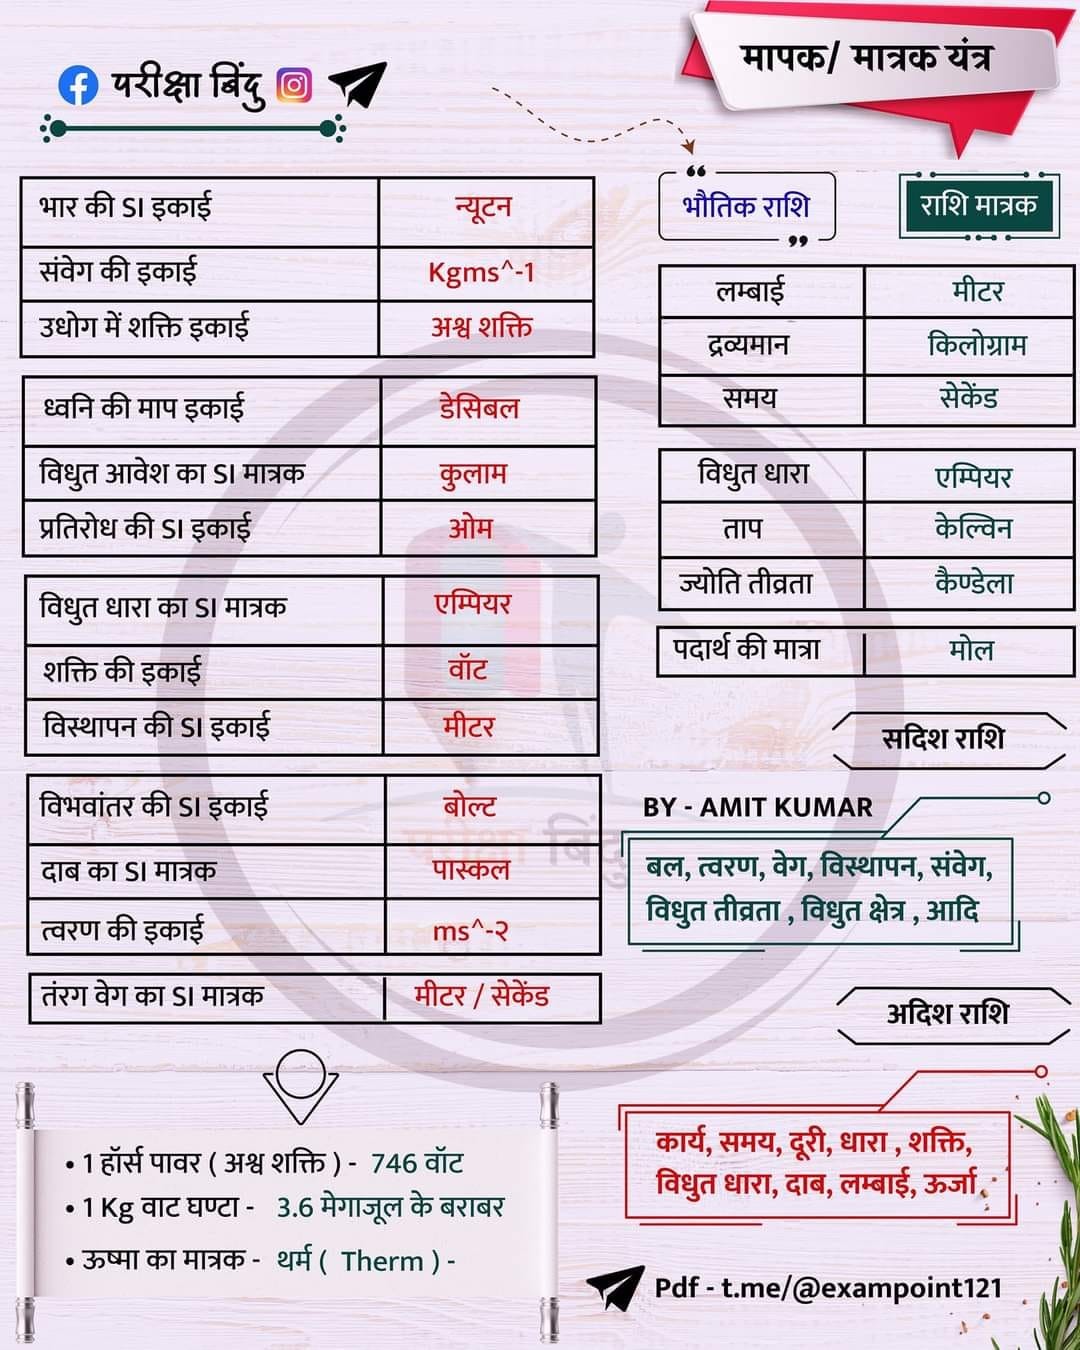 परीक्षा बिंदु
मापक/ मात्रक यंत्र
भार की SI इकाई न्यूटन
संवेग की इकाई Kgms^-1
उधोग में शक्ति इकाई अश्व शक्ति
ध्वनि की माप इकाई डेसिबल
विधुत आवेश का SI मात्रक कुलाम
प्रतिरोध की SI इकाई ओम
विधुत धारा का SI मात्रक एम्पियर
शक्ति की इकाई वॉट
विस्थापन की SI इकाई मीटर
विभवांतर की SI इकाई बोल्ट
दाब का SI मात्रक पास्कल
त्वरण की इकाई ms^-२
तंरग वेग का SI मात्रक मीटर / सेकेंड
• 1 हॉर्स पावर ( अश्व शक्ति ) - 746 वॉट
• 1 Kg वाट घण्टा - 3.6 मेगाजूल के बराबर
• ऊष्मा का मात्रक - थर्म ( Therm ) -
“ भौतिक राशि ”
राशि मात्रक
लम्बाई मीटर
द्रव्यमान किलोग्राम
समय सेकेंड
विधुत धारा एम्पियर
ताप केल्विन
ज्योति तीव्रता कैण्डेला
पदार्थ की मात्रा मोल
सदिश राशि
BY - AMIT KUMAR
बल, त्वरण, वेग, विस्थापन, संवेग,
विधुत तीव्रता , विधुत क्षेत्र , आदि
अदिश राशि
कार्य, समय, दूरी, धारा , शक्ति,
विधुत धारा, दाब, लम्बाई, ऊर्जा
Pdf - t.me/@exampoint121
परीक्षा बिंदु